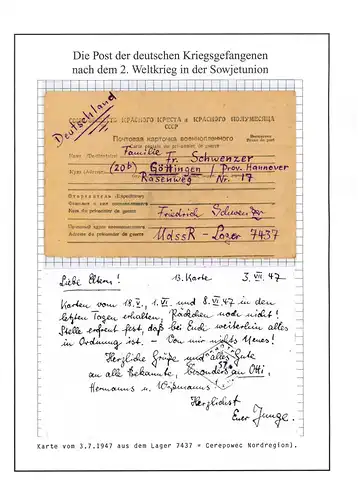 Die Post der deutschen Kriegsgefangenen
nach dem 2. Weltkrieg in der Sowjetunion
Deutschland
СОЮЗ ОБЩЕСТВ КРАСНОГО КРЕСТА и КРАСНОГО ПОЛУМЕСЯЦА
СССР
Почтовая карточка военнопленного
Carte postale du prisonnier de guerre
Бесплатно
Franc de port
Familie
Кому (Destinataire) Fr. Schwenzer
Куда (Adresse) (20b) Göttingen / Prov. Hannover
Rasenweg Nr. 17
Отправитель (Expéditeur)
Фамилия и имя военнопленного
Nom du prisonnier de guerre Friedrich Schwenzer
Почтовый адрес военнопленного
Adresse du prisonnier de guerre UdSSR - Lager 7437
Liebe Eltern! 13. Karte 3. VII. 47
Karten vom 18. V., 1. VI. und 8. VI. 47 in den
letzten Tagen erhalten, Päckchen noch nicht!
Stelle erfreut fest, daß bei Euch weiterhin alles
in Ordnung ist. - Von mir nichts Neues!
Herzliche Grüße und alles Gute
an alle Bekannte, besonders an Otti,
Hermanns u. Wißmanns.
Herzlichst
Euer Junge.
Karte vom 3.7.1947 aus dem Lager 7437 = Cerepowec Nordregion).